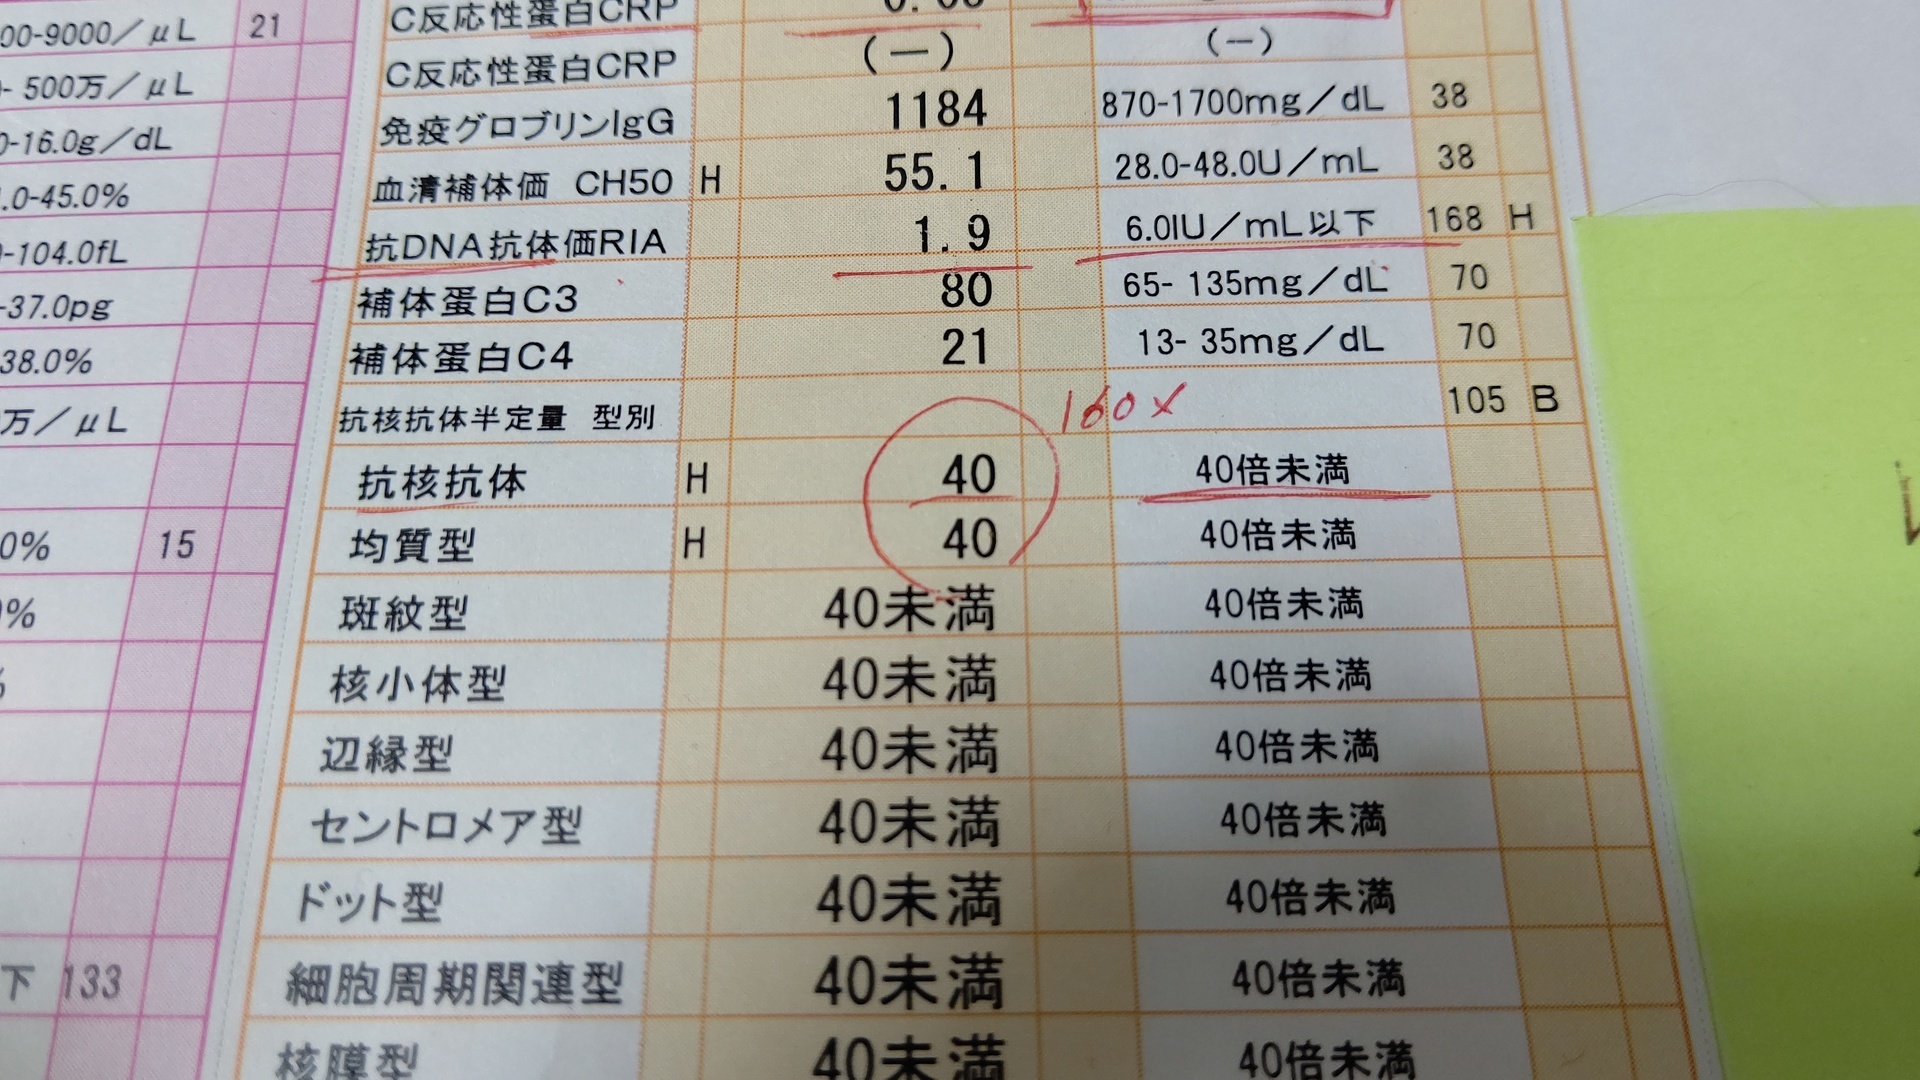 00-9000／μL 21
C反応性蛋白CRP
C反応性蛋白CRP (－) (－)
500万／μL
免疫グロブリンIgG 1184 870-1700mg／dL 38
0-16.0g／dL
血清補体価 CH50 H 55.1 28.0-48.0U／mL 38
.0-45.0%
抗DNA抗体価RIA 1.9 6.0IU／mL以下 168 H
-104.0fL
補体蛋白C3 80 65- 135mg／dL 70
-37.0pg
補体蛋白C4 21 13- 35mg／dL 70
38.0%
抗核抗体半定量 型別 160× 105 B
万／μL
抗核抗体 H 40 40倍未満
均質型 H 40 40倍未満
0% 15
斑紋型 40未満 40倍未満
%
核小体型 40未満 40倍未満
辺縁型 40未満 40倍未満
セントロメア型 40未満 40倍未満
ドット型 40未満 40倍未満
細胞周期関連型 40未満 40倍未満
下 133
核膜型 40未満 40倍未満